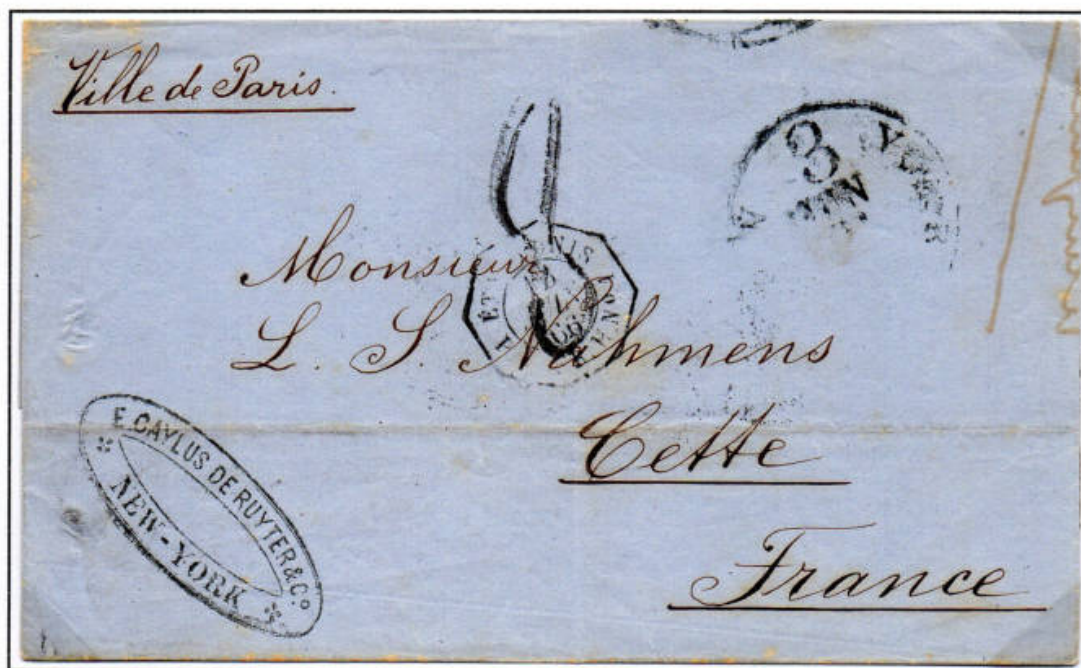 Ville de Paris.
3
Monsieur
L. S. Nahmens
Cette
France
E. CAYLUS DE RUYTER & Cº
NEW-YORK